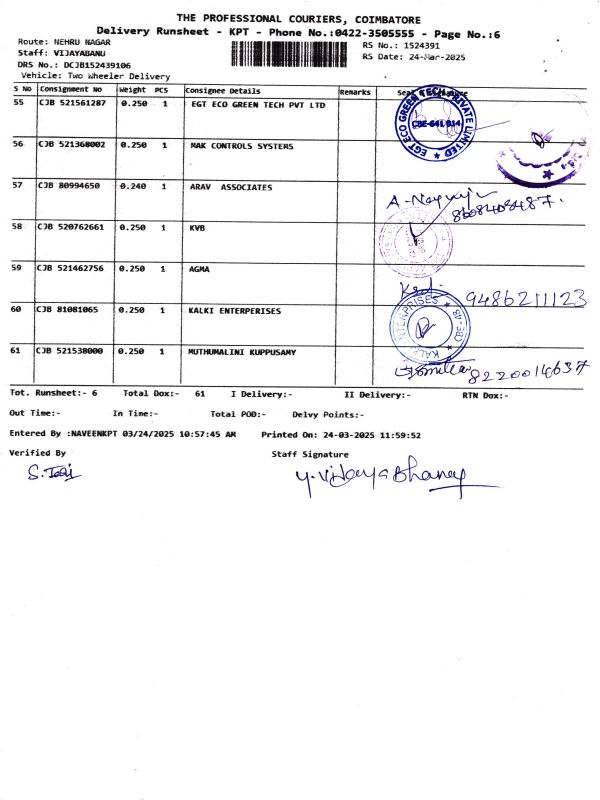 THE PROFESSIONAL COURIERS, COIMBATORE
Delivery Runsheet - KPT - Phone No.:0422-3505555 - Page No.:6
Route: NEHRU NAGAR
RS No.: 1524391
Staff: VIJAYABANU
RS Date: 24-Mar-2025
DRS No.: DCJB152439106
Vehicle: Two Wheeler Delivery
S No Consignment No Weight PCS Consignee Details Remarks
55 CJB 521561287 0.250 1 EGT ECO GREEN TECH PVT LTD
EGT ECO GREEN TECH PRIVATE LIMITED
CBE-641 014
56 CJB 521368002 0.250 1 MAK CONTROLS SYSTEMS
57 CJB 80994650 0.240 1 ARAV ASSOCIATES
58 CJB 520762661 0.250 1 KVB
59 CJB 521462756 0.250 1 AGMA
9486211123
60 CJB 81081065 0.250 1 KALKI ENTERPERISES
KALKI ENTERPRISES
61 CJB 521538000 0.250 1 MUTHUMALINI KUPPUSAMY
8220014637
Tot. Runsheet:- 6 Total Dox:- 61 I Delivery:- II Delivery:- RTN Dox:-
Out Time:- In Time:- Total POD:- Delvy Points:-
Entered By :NAVEENKPT 03/24/2025 10:57:45 AM Printed On: 24-03-2025 11:59:52
Verified By Staff Signature